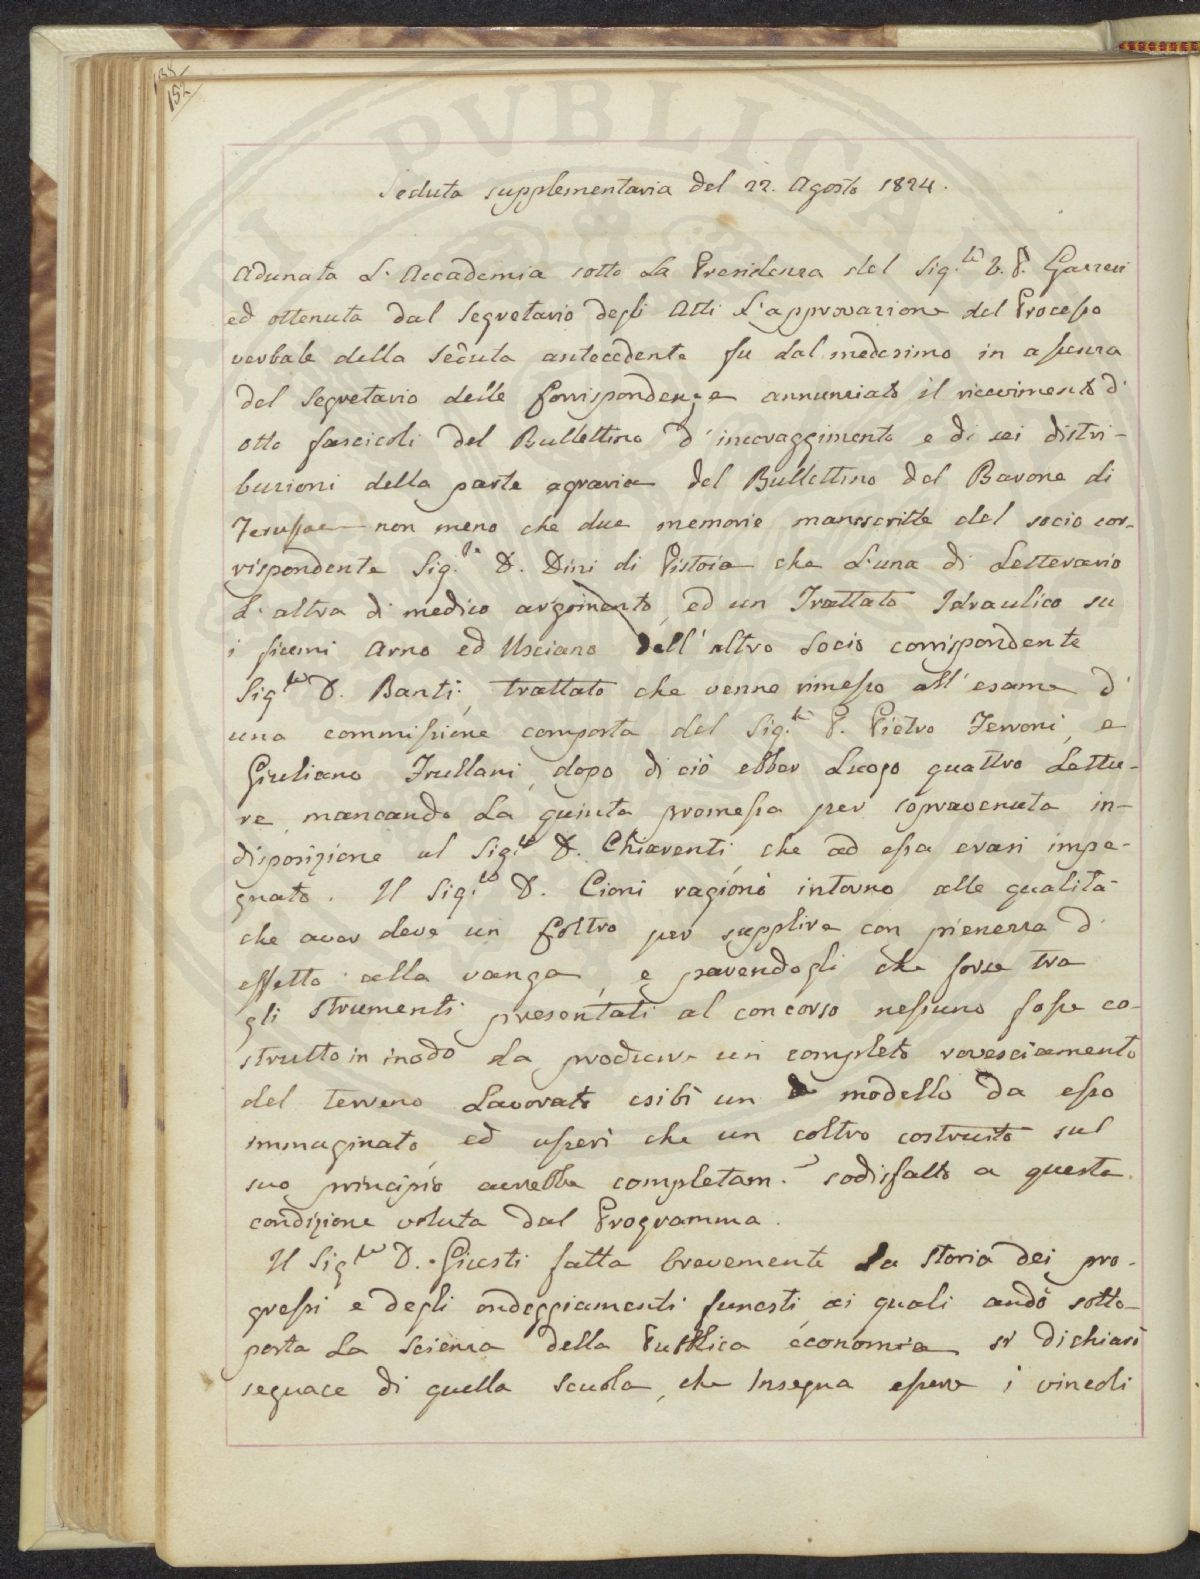 138
152
Seduta supplementaria del 22. Agosto 1824.
Adunata L'Accademia sotto La Presidenza del Sig.re V. P. Gazzeri
ed ottenuta dal Segretario degli Atti L'approvazione del Processo
verbale della Seduta antecedente fu dal medesimo in assenza
del Segretario delle Corrispondenze annunciato il ricevimento di
otto fascicoli del Bullettino d'incoraggimento e di sei distri-
buzioni della parte agraria del Bullettino del Barone di
Ferussac non meno che due memorie manoscritte del socio cor-
rispondente Sig.re D. Dini di Pistoia che L'una di Letterario
L'altra di medico argomento, ed un Trattato Idraulico su
i fiumi Arno ed Usciana dell'altro Socio corrispondente
Sig.re D. Banti, trattato che venne rimesso all'esame d'
una commissione composta del Sig.re P. Pietro Ferroni, e
Giuliano Frullani, dopo di ciò ebber Luogo quattro Lettu-
re, mancando La quinta promessa per sopravvenuta in-
disposizione al Sig.re D. Chiarenti, che ad essa erasi impe-
gnato. Il Sig.re D. Cioni ragionò intorno alle qualità
che aver deve un Coltro per supplire con pienezza d'
effetto alla vanga, e parendogli che forse tra
gli Strumenti presentati al concorso nessuno fosse co-
strutto in modo da produrre un completo rovesciamento
del terreno Lavorato esibì un modello da esso
immaginato, ed asserì che un coltro costruito sul
suo principio avrebbe completam.e sodisfatto a questa
condizione voluta dal Programma.
Il Sig.re D. Giusti fatta brevemente La Storia dei pro-
gressi e degli ondeggiamenti funesti ai quali andò sotto-
posta La Scienza della Pubblica economia si dichiarò
seguace di quella Scuola, che Insegna essere i vincoli